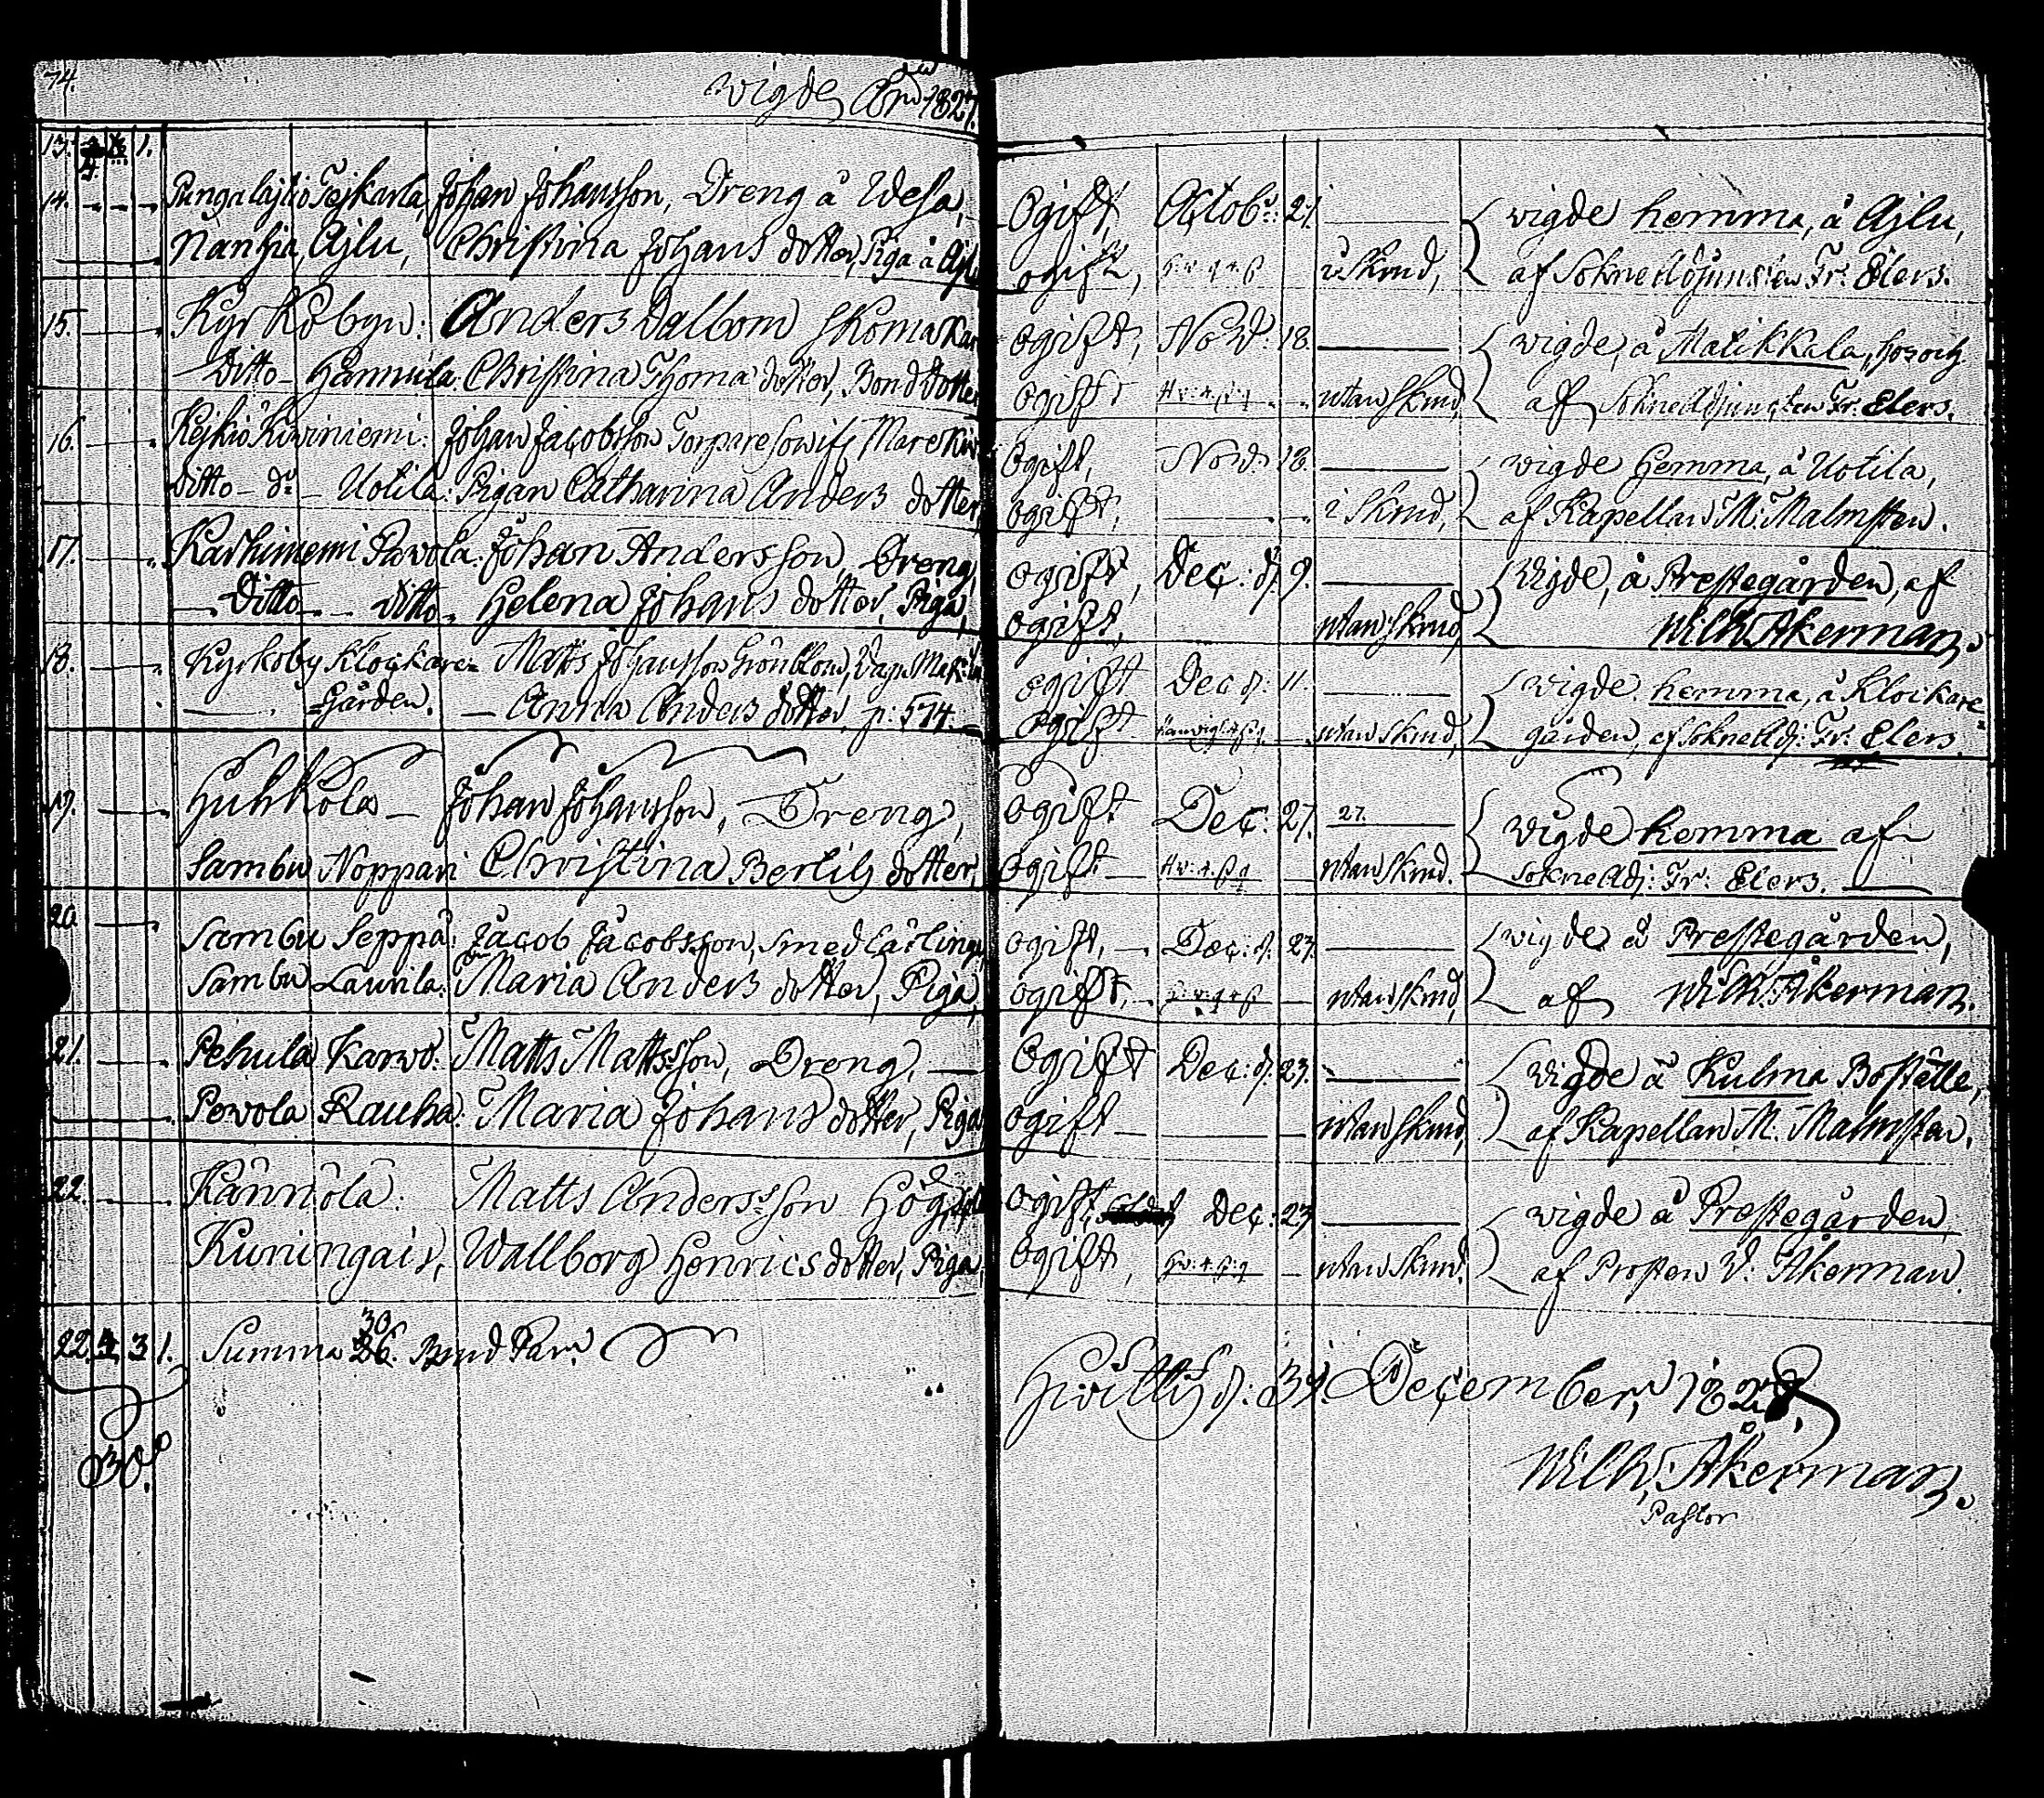 74.
Wigde Åhr 1827.
13. 4 1.
14. Pungalajtio Tejkarla, Johan Johansson, Dreng å Wesa, Ogift, Octobr: 21.
wigde hemma, å Ajlu,
Nanhia, Ajlu, Christina Johans dotter, Piga å Ajlu ogift, i Skrud,
af SokneAdjuncten Fr: Elers.
15. Kyrkobyn: Anders Dalbom Skomakar ogift, Nov: 18.
wigde, å Matikkala, hos och
Ditto - Hannula: Christina Thoma dotter, Bond dotter ogift utan Skrud,
af SokneAdjuncten Fr: Elers.
16. Kejkiö Kiviniemi: Johan Jacobsson Torpare Ogift, Nov: 18.
wigde hemma, å Uotila,
ditto - do - Uotila: Pigan Catharina Anders dotter, ogift, i Skrud,
af Kapellan M: Malmsten.
17. Karhiniemi Pavola: Johan Andersson, Dreng, ogift, Dec: d. 9.
Wigde, å Prestegården, af
Ditto - ditto - Helena Johans dotter, Piga, ogift, utan Skrud,
Wilh. Åkerman.
18. Kyrkoby Klockare= Matts Johansson Grönblom, ogift Dec d: 11.
wigde hemma, å Klockare=
=Gården. - Anna Anders dotter, p: 574. ogift utan Skrud,
gården, af SokneAdj: Fr: Elers.
19. Huhkola - Johan Johansson, Dreng, Ogift Dec: 27. 27.
wigde hemma af
Sambu Noppari Christina Bertils dotter, Ogift utan Skrud.
SokneAdj: Fr: Elers.
20. Sambu Seppä: Jacob Jacobsson, Smed Lärling, ogift, Dec: d. 23.
wigde å Prestegården,
Sambu Laurila: Maria Anders dotter, Piga, ogift, utan Skrud,
af Wilh. Åkerman.
21. Pehula Karvo: Matts Mattsson, Dreng, Ogift Dec: d. 23.
wigde å Kulma Boställe,
Pevola Rauha: Maria Johans dotter, Piga ogift utan Skrud,
af Kapellan M. Malmsten.
22. Kännölä: Matts Andersson ogift, Dec: 23
wigde å Prestegården,
Kuningais, Wallborg Henrics dotter, Piga, Ogift, utan Skrud.
af Prosten W: Åkerman.
22. 4. 3 1. Summa 30. Brud Par.
30.
Hvittis d: 31. December, 1827.
Wilh. Åkerman.
Pastor